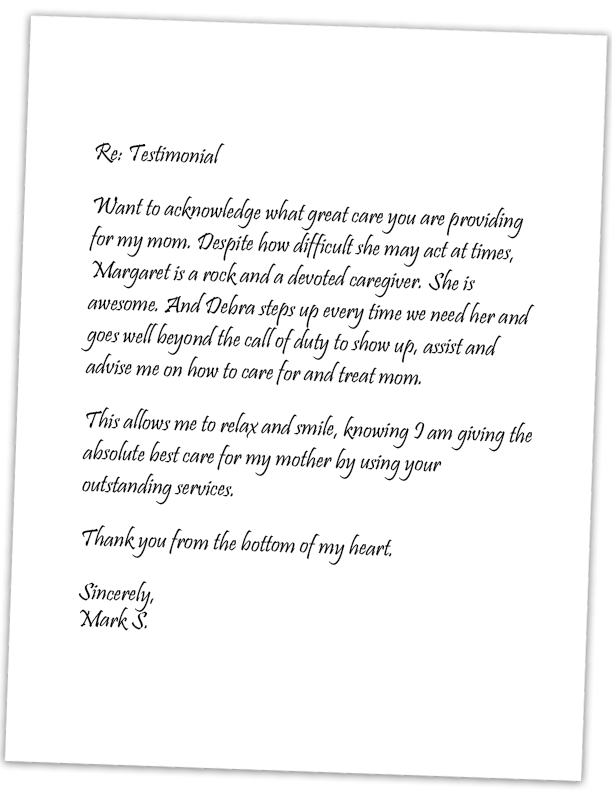 Re: Testimonial
Want to acknowledge what great care you are providing
for my mom. Despite how difficult she may act at times,
Margaret is a rock and a devoted caregiver. She is
awesome. And Debra steps up every time we need her and
goes well beyond the call of duty to show up, assist and
advise me on how to care for and treat mom.
This allows me to relax and smile, knowing I am giving the
absolute best care for my mother by using your
outstanding services.
Thank you from the bottom of my heart.
Sincerely,
Mark S.